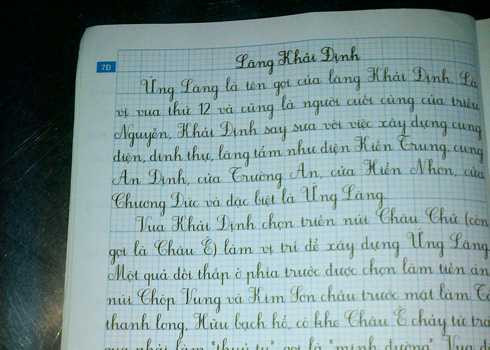 70
Lăng Khải Định
Ứng Lăng là tên gọi của lăng Khải Định. Là
vị vua thứ 12 và cũng là người cuối cùng của triều
Nguyễn, Khải Định say sưa với việc xây dựng cung
điện, dinh thự, lăng tẩm như điện Kiến Trung, cung
An Định, cửa Trường An, cửa Hiển Nhơn, cửa
Chương Đức và đặc biệt là Ứng Lăng.
Vua Khải Định chọn triền núi Châu Chữ (còn
gọi là Châu Ê) làm vị trí để xây dựng Ứng Lăng
Một quả đồi thấp ở phía trước được chọn làm tiền án
núi Chóp Vung và Kim Sơn chầu trước mặt làm Tả
thanh long, Hữu bạch hổ, có khe Châu Ê chảy từ trá
qua phải làm "thuỷ tụ" gọi là "minh đường". Vua